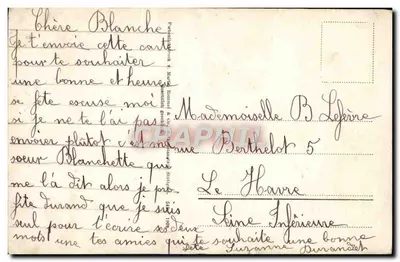 Chère Blanche
Je t'envoie cette carte
pour te souhaiter
une bonne et heureuse
fête escuse moi
si je ne te l'ai pas
envoier plâtot c'est ma
soeur Blanchette qui
me l'à dit alors je pro
fite durand que je suis
seul pour t'écrire ses deux
mots une tes amies qui te souhaite une bonne
fête Suzanne Durandet
Mademoiselle B Lefèvre
rue Berthelot 5
Le Havre
Seine Inférieure